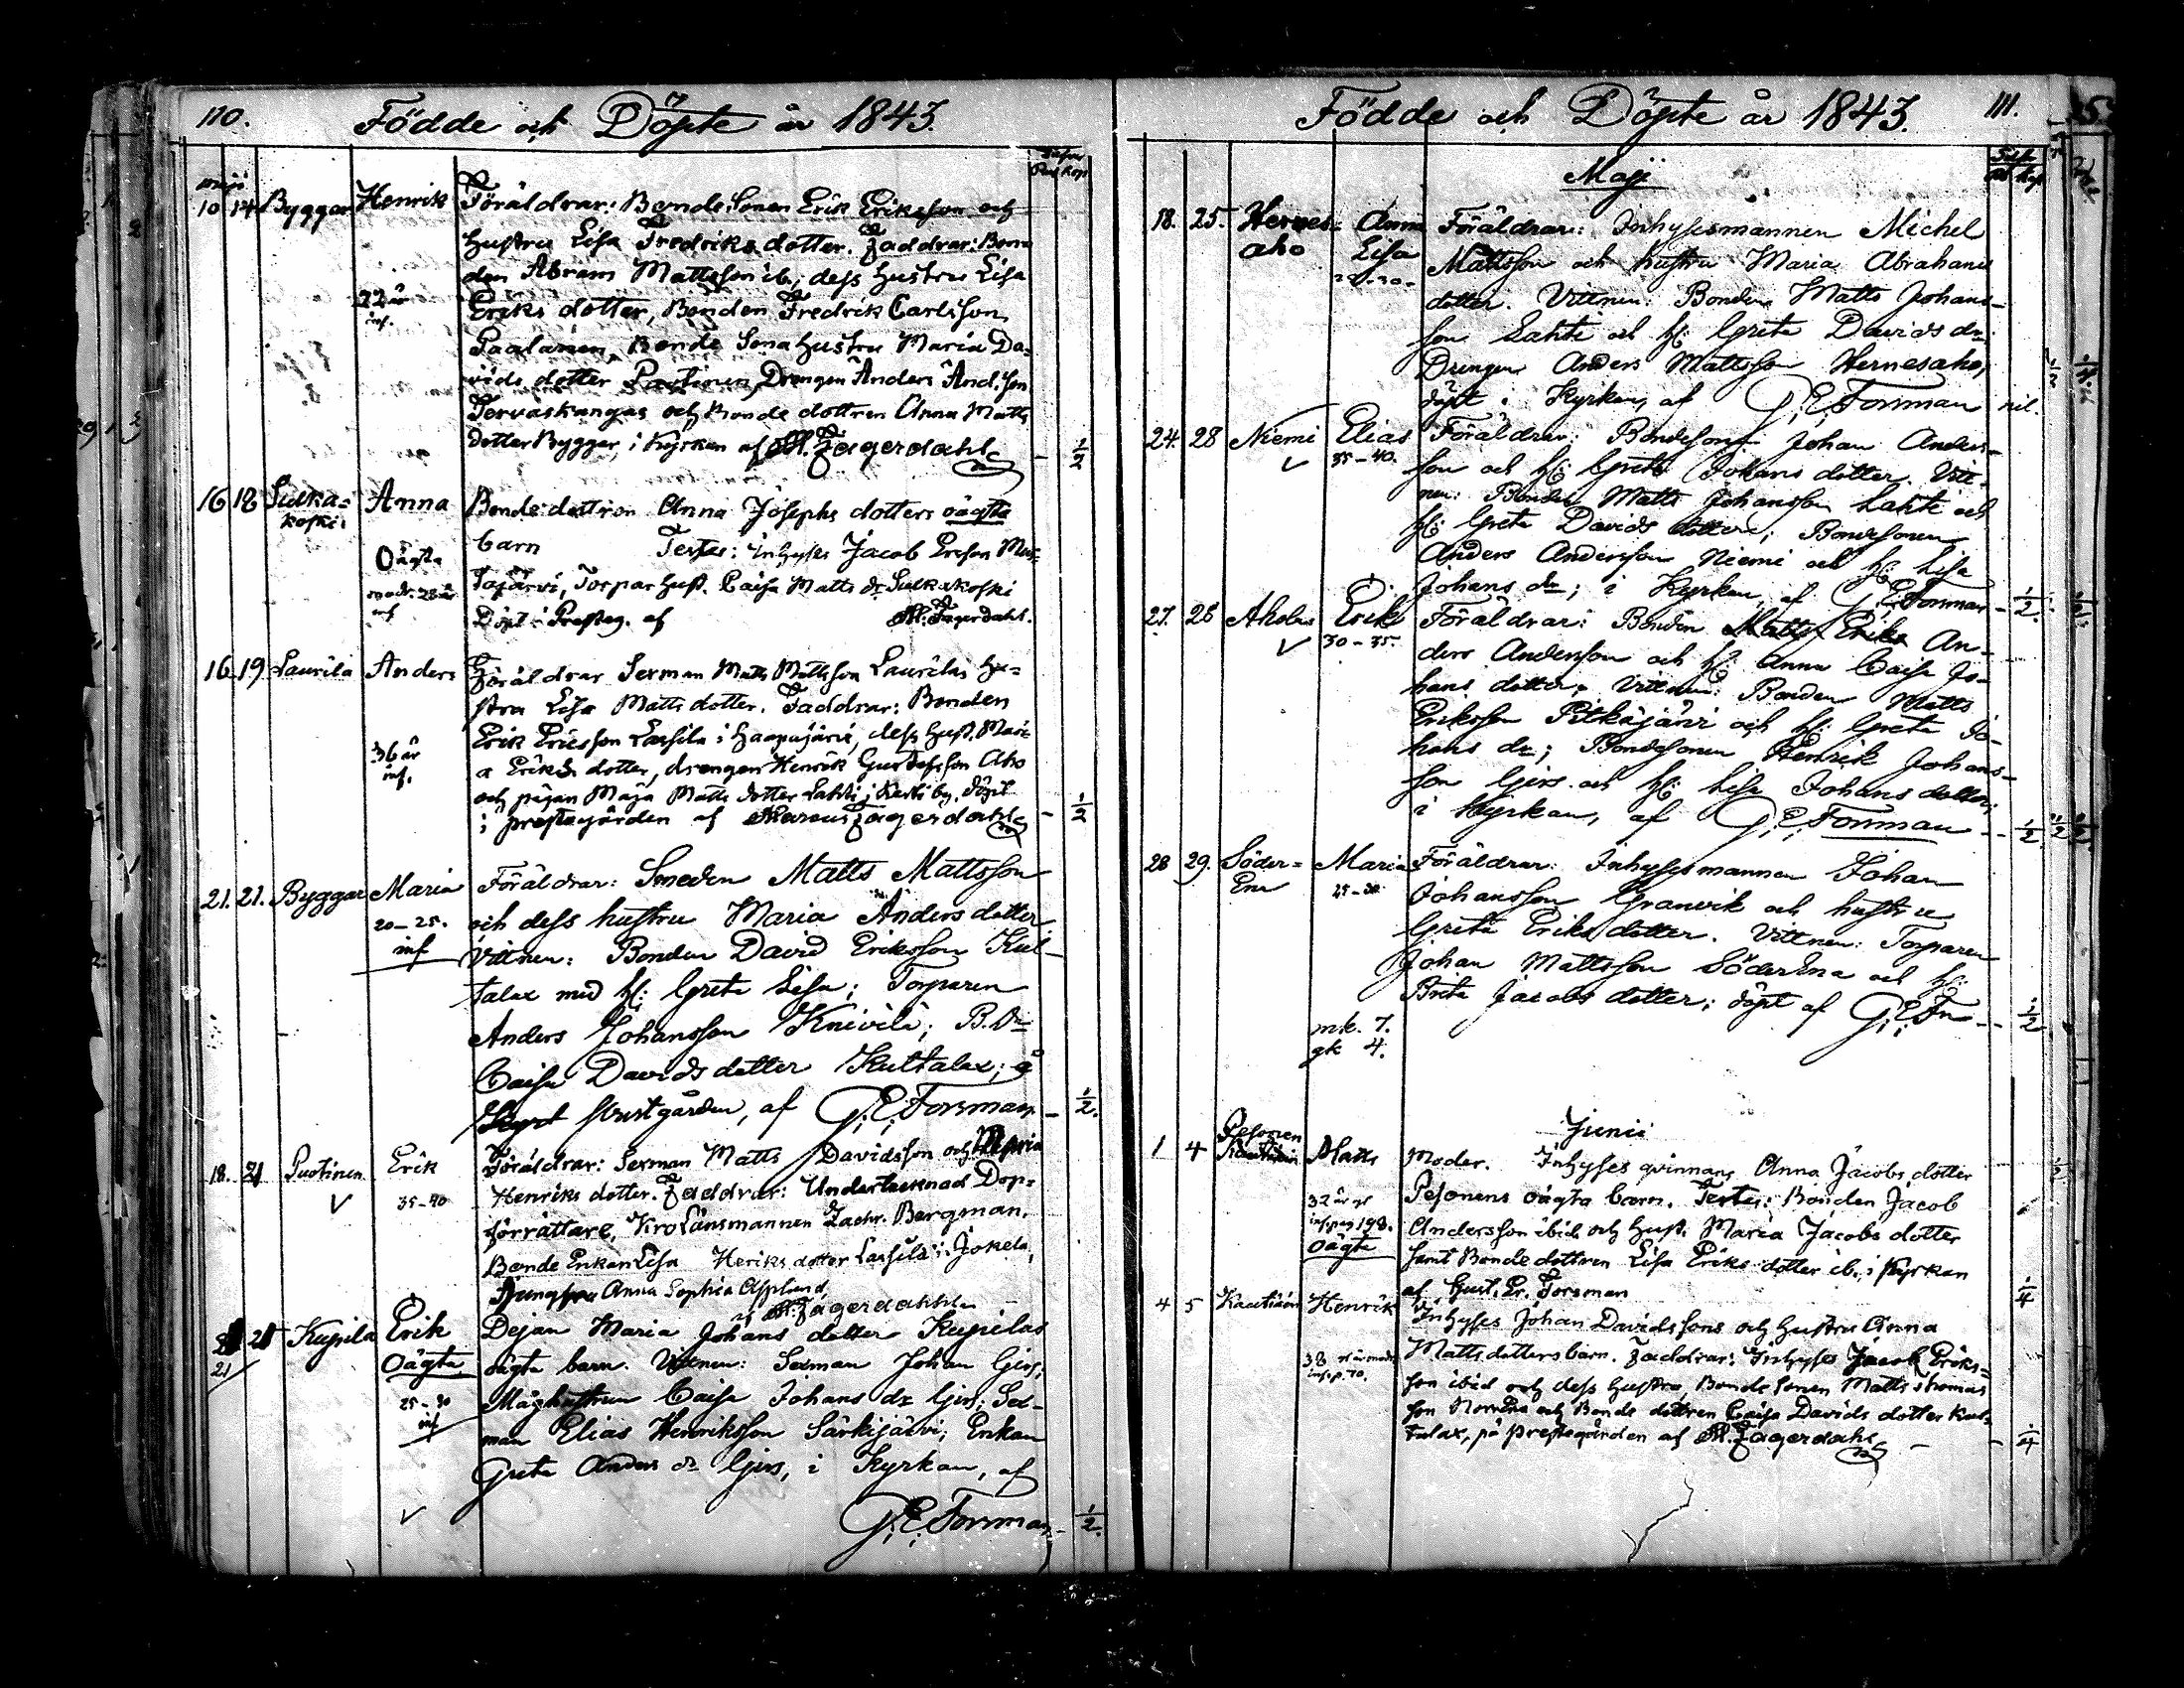 110.
Födde och Döpte år 1843.
Maji
10 14 Byggar Henrik
Föräldrar: Bonde Sonen Erik Eriksson och
hustru Lisa Fredriks dotter. Faddrar: Bon
den Abram Mattsson ib, dess hustru Lisa
22 år
inf.
Eriks dotter, Bonden Fredrik Carlsson
Paalanen, Bonde Sona hustru Maria Da=
vids dotter Drengen Anders And.son
Tervaskangas och Bonde dottren Anna Matts
dotter Bygger, i Kyrkan af M. Fagerdahl
- 1/2
16 18 Sulka=
koski
Anna
Bonde dottren Anna Josephs dotters oägta
barn Testes: Inhyses Jacob Ersson Mus=
Oägta
modr. 28 år
inf
tajärvi, Torpar hust. Caisa Matts dr Sulkakoski
Döpt i Presteg. af M. Fagerdahl.
16 19 Laurila Anders
Föräldrar Serman Matts Mattsson Laurilas hu=
stru Lisa Matts dotter. Faddrar: Bonden
Erik Ericsson Lassila i Haapajärvi, dess hust. Mari
36 år
inf.
a Eriks dotter, drengen Henrik Gustafsson Aho
och pigan Maja Matts dotter Lahti i by, döpt
i prestegården af Marcus Fagerdahl
- 1/2
21. 21. Byggar Maria
20-25.
inf
Föräldrar: Smeden Matts Mattsson
och dess hustru Maria Anders dotter
Vittnen: Bonden David Eriksson Kul-
talax med h: Greta Lisa; Torparen
Anders Johansson Knivilä; B. Dr
Caisa Davids dotter Kultalax; å
Prestgården, af G. E. Forsman
- 1/2.
18. 21 Suotinen Erik
35-40
Föräldrar: Sexman Matts Davidsson och Maria
Henriks dotter. Faddrar: Undertecknad Dop=
förrättare, KroLänsmannen Zachr. Bergman,
Bonde Enkan Lisa Heriks dotter Lassila i Jokela,
Jungfru Anna Sophia Asplund,
af M. Fagerdahl
21 Kupila Erik
21
Oägta
25-30
inf
Dejan Maria Johans dotter Kupilas
oägta barn. Vittnen: Sexman Johan Girs,
Måghustrun Caisa Johans dr Girs; Sex-
man Elias Henriksson Särkijärvi; Enkan
Greta Anders dr Girs, i Kyrkan, af
G. E. Forsman
- 1/2.
Födde och Döpte år 1843.
111.
Maji
18. 25. Hernes=
aho
Anna
Lisa
Föräldrar: Inhysesmannen Michel
Mattsson och hustru Maria Abrahams
dotter. Vittnen: Bonden Matts Johans-
son Lahti och h: Greta Davids dr
Drengen Anders Mattsson Hernesaho,
döpt i Kyrkan, af G. E. Forsman nil.
24. 28 Niemi Elias
35-40.
Föräldrar: Bondeson Johan Anders-
son och h: Greta Johans dotter. Vitt-
nen: Bonden Matts Johansson Lahti och
h: Greta Davids dotter; Bondesonen
Anders Andersson Niemi och h: Lisa
Johans dr; i Kyrkan, af G. E. Forsman - 1/2.
27. 28 Aholu Erik
30-35.
Föräldrar: Bonden An-
ders Andersson och h: Anna Caisa Jo-
hans dotter. Vittnen: Bonden Matts
Eriksson Pitkäjärvi och h: Greta Jo-
hans dr; Bondesonen Henrik Johans-
son Girs och h: Lisa Johans dotter;
i Kyrkan, af G. E. Forsman - 1/2
28 29. Söder=
Ena
Maria
25-30
Föräldrar: Inhysesmannen Johan
Johansson Granvik och hustru
Greta Eriks dotter. Vittnen: Torparen
Johan Mattsson SöderEna och h:
Brita Jacobs dotter; döpt af G. E. Fn - 1/2
mk. 7.
gk 4.
Junii
1 4 Pesonen
Matts
Moder. Inhyses qvinnans Anna Jacobs dotter
32 år gl
inf. pag 198.
Oägta
Pesonens oägta barn. Testes: Bonden Jacob
Andersson ibid. och hust. Maria Jacobs dotter
samt Bonde dottren Lisa Eriks dotter ib. i Kyrkan
af Gust. Er. Forsman
1/4
4 5 Kautiain Henrik
Inhyses Johan Davidssons och hustru Anna
Matts dotters barn. Faddrar: Inhyses Jacob Eriks=
son ibid och dess hustru, Bonde Sonen Matts Thomas
son NorrEna och Bonde dottren Caisa Davids dotter Kul=
talax, på prestegården af M. Fagerdahl
- 1/4